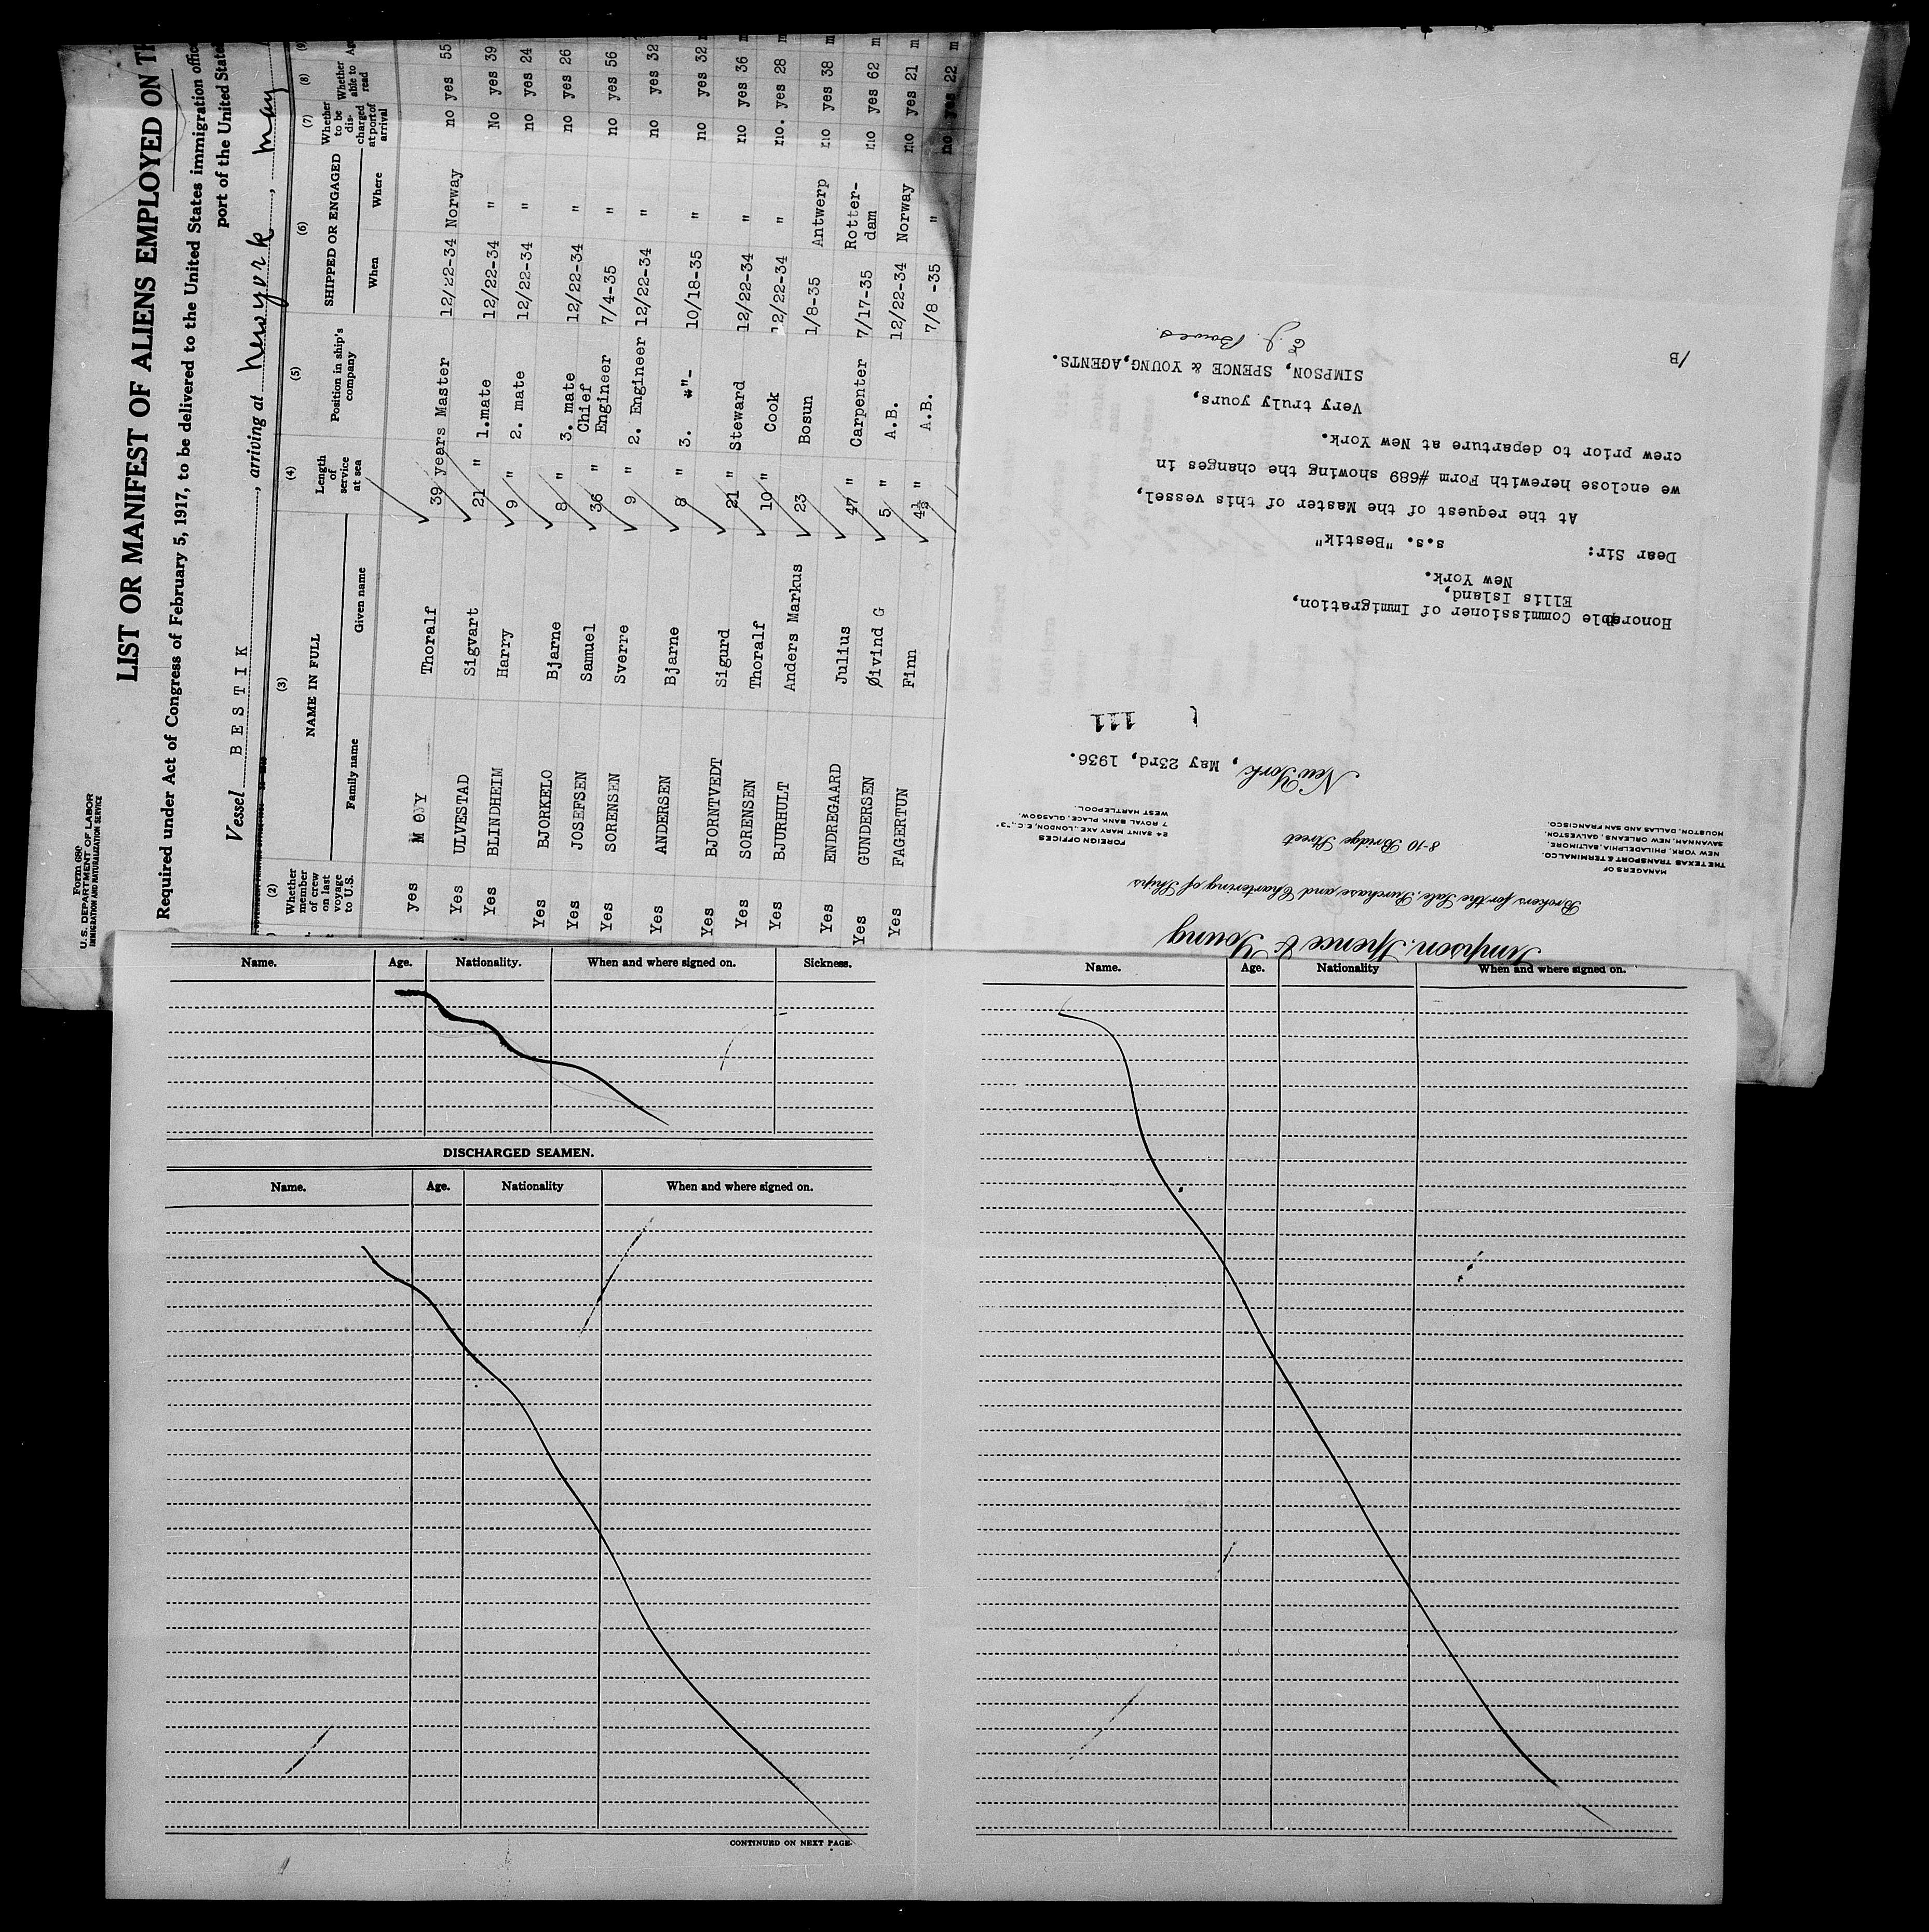 Form 680
U.S. DEPARTMENT OF LABOR
IMMIGRATION AND NATURALIZATION SERVICE
LIST OR MANIFEST OF ALIENS EMPLOYED ON TH
Required under Act of Congress of February 5, 1917, to be delivered to the United States immigration offic
port of the United State
Vessel BESTIK, arriving at New York, May
(2) (3) (4) (5) (6) (7) (8) (9)
Whether member of crew on last voyage to U.S. NAME IN FULL Family name Given name Length of service at sea Position in ship's company SHIPPED OR ENGAGED When Where Whether to be discharged at port of arrival Whether able to read Ag
yes MOOY Thoralf 39 years Master 12/22-34 Norway no yes 55
Yes ULVESTAD Sigvart 21 " 1.mate 12/22-34 " No yes 39
Yes BLINDHEIM Harry 9 " 2. mate 12/22-34 " no yes 24
Yes BJORKELO Bjarne 8 " 3. mate 12/22-34 " no yes 26
Yes JOSEFSEN Samuel 36 " Chief Engineer 7/4-35 " no yes 56
Yes SORENSEN Sverre 9 " 2. Engineer 12/22-34 " no yes 32
Yes ANDERSEN Bjarne 8 " 3. -"- 10/18-35 " no yes 32 m
Yes BJORNTVEDT Sigurd 21 " Steward 12/22-34 " no yes 36 m
Yes SORENSEN Thoralf 10 " Cook 12/22-34 " no. yes 28 m
Yes BJURHULT Anders Markus 23 Bosun 1/8-35 Antwerp no yes 38 m
Yes ENDREGAARD Julius 47 " Carpenter 7/17-35 Rotter-dam no yes 62 m
Yes GUNDERSEN Øivind G 5 " A.B. 12/22-34 Norway no yes 21 m
Yes FAGERTUN Finn 4½ " A.B. 7/8 -35 " no yes 22 m
Simpson, Spence & Young
Brokers for the Sale, Purchase and Chartering of Ships
MANAGERS OF
THE TEXAS TRANSPORT & TERMINAL CO.
NEW YORK, PHILADELPHIA, BALTIMORE,
SAVANNAH, NEW ORLEANS, GALVESTON,
HOUSTON, DALLAS AND SAN FRANCISCO.
8-10 Bridge Street
FOREIGN OFFICES
24 SAINT MARY AXE., LONDON, E.C., "3"
7 ROYAL BANK PLACE, GLASGOW.
WEST HARTLEPOOL.
New York, May 23rd, 1936.
111
Honorable Commissioner of Immigration,
Ellis Island,
New York.
Dear Sir: s.s. "Bestik"
At the request of the Master of this vessel,
we enclose herewith Form #689 showing the changes in
crew prior to departure at New York.
Very truly yours,
SIMPSON, SPENCE & YOUNG, AGENTS.
/B
Name. Age. Nationality. When and where signed on. Sickness.
DISCHARGED SEAMEN.
Name. Age. Nationality When and where signed on.
CONTINUED ON NEXT PAGE.
Name. Age. Nationality When and where signed on.